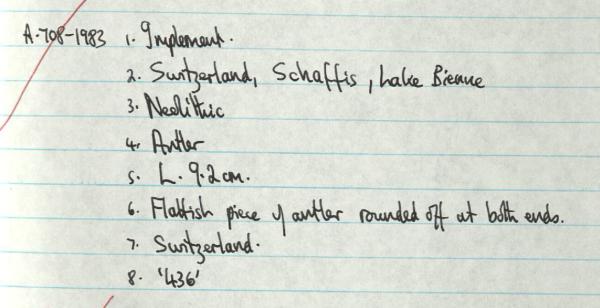 A.708-1983 1. Implement.
2. Switzerland, Schaffis, Lake Bienne
3. Neolithic
4. Antler
5. L. 9.2cm.
6. Flattish piece of antler rounded off at both ends.
7. Switzerland.
8. '436'